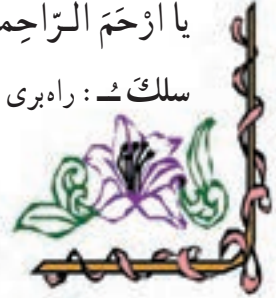 يا اَرْحَمَ الرّاحِمـ
سلكَ ـُـ : راه‌بری